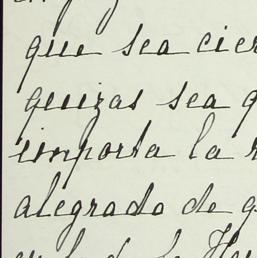 que sea cier
quizas sea q
importa la r
alegrado de q